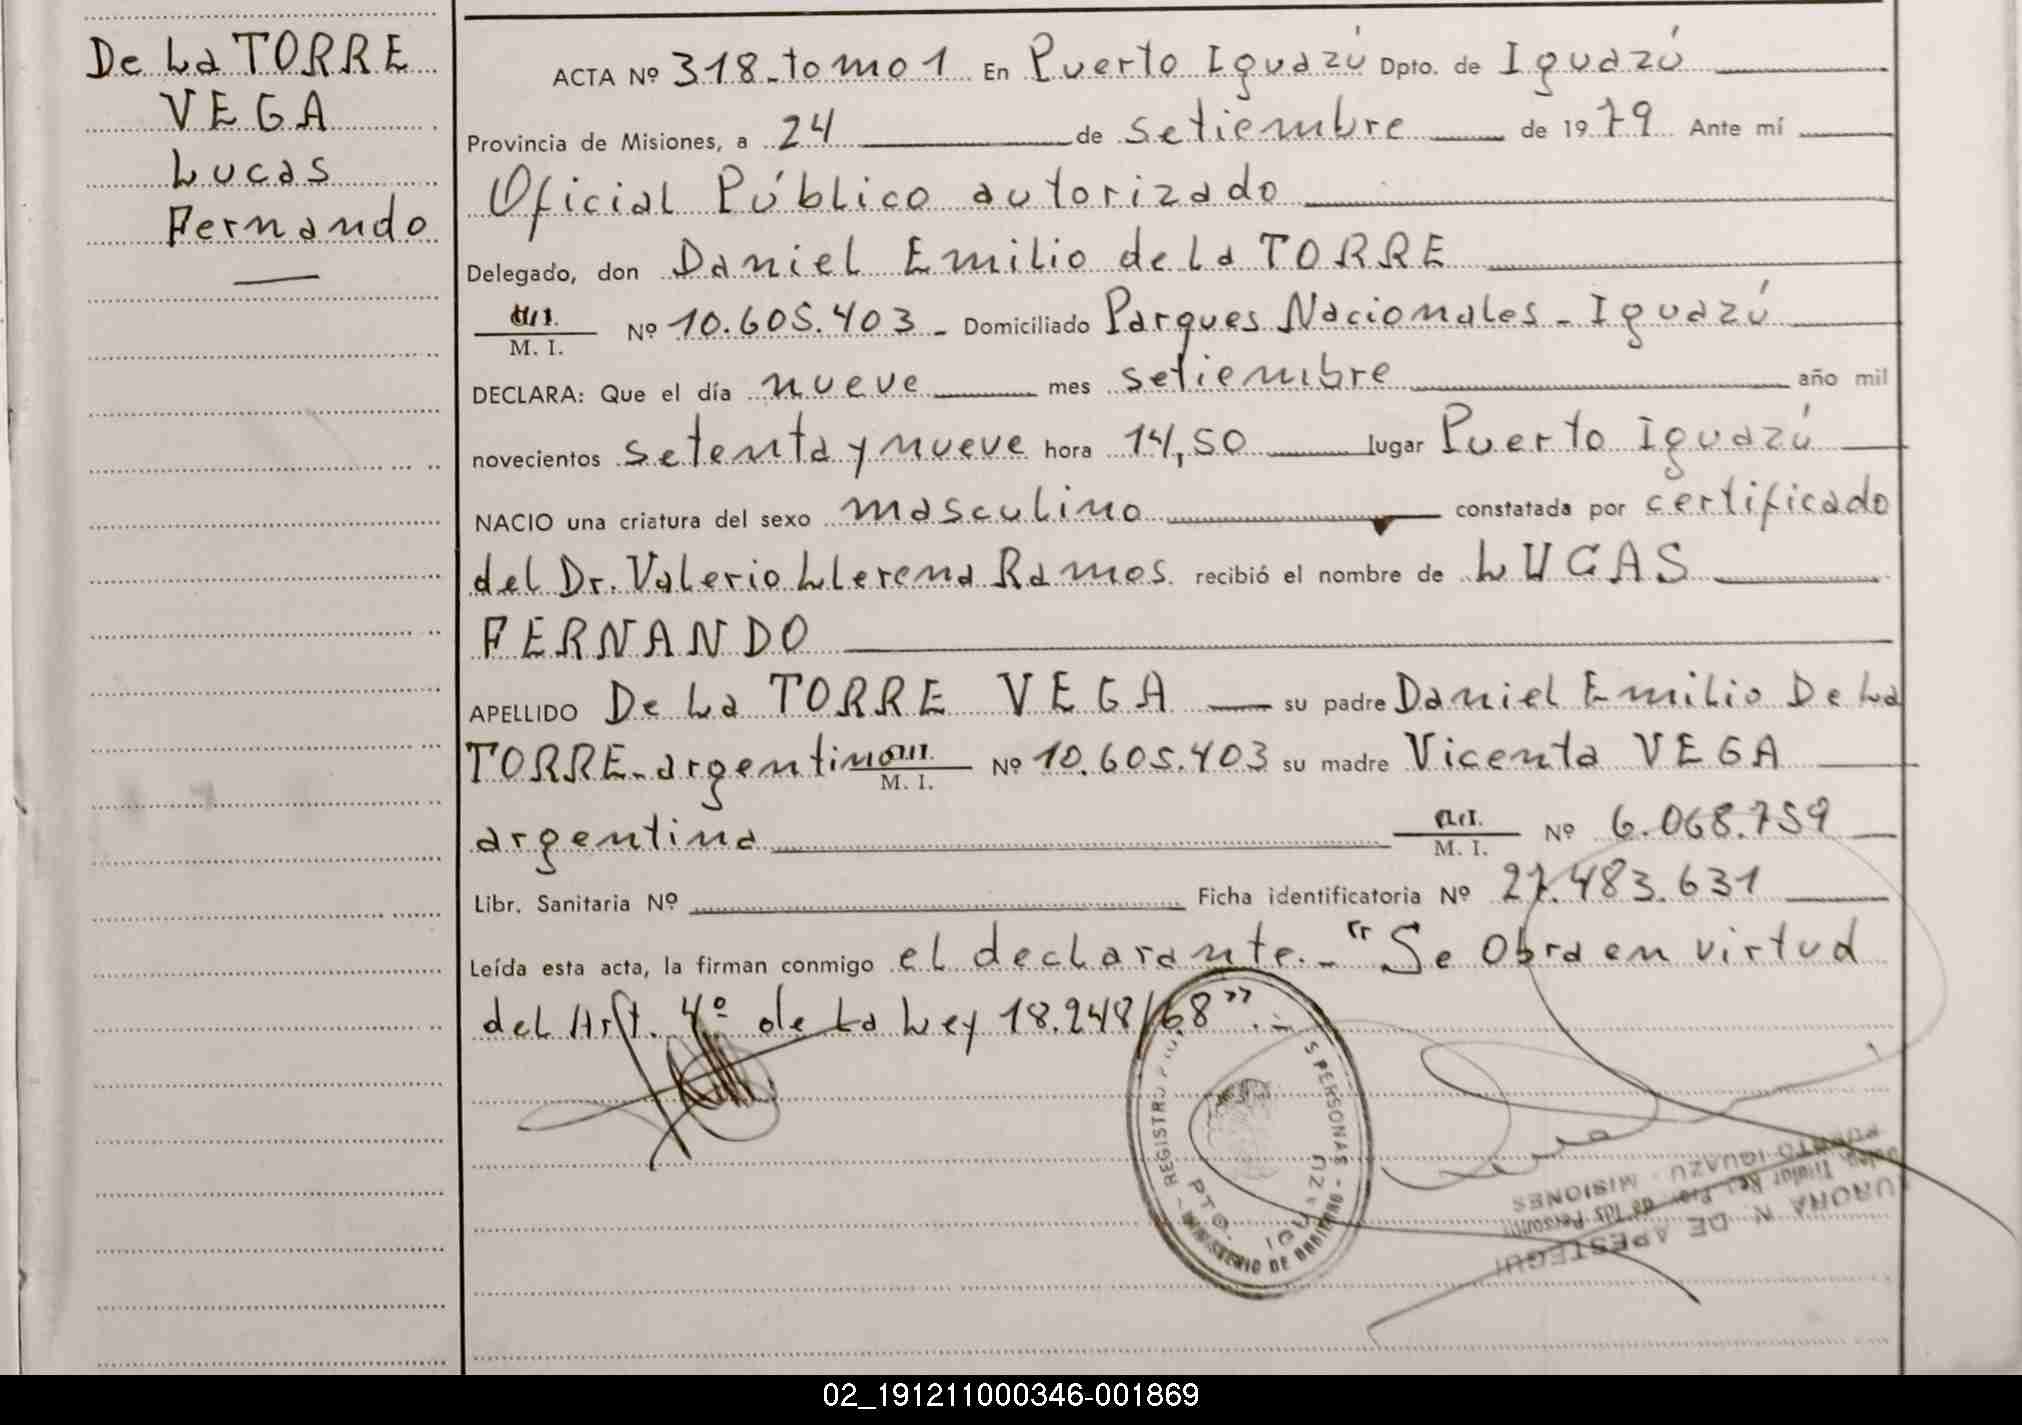 De La TORRE
VEGA
Lucas
Fernando
ACTA Nº 318-tomo 1 En Puerto Iguazú Dpto. de Iguazú
Provincia de Misiones, a 24 de setiembre de 1979 Ante mí
Oficial Público autorizado
Delegado, don Daniel Emilio de la TORRE
M.I.
M. I. Nº 10.605.403 - Domiciliado Parques Nacionales - Iguazú
DECLARA: Que el día nueve mes setiembre año mil
novecientos setenta y nueve hora 14,50 lugar Puerto Iguazú
NACIO una criatura del sexo masculino constatada por certificado
del Dr. Valerio Llerena Ramos recibió el nombre de LUCAS
FERNANDO
APELLIDO De La TORRE VEGA su padre Daniel Emilio De La
TORRE - argentino M.I. Nº 10.605.403 su madre Vicenta VEGA
M. I.
argentina M.I. Nº 6.068.759
M. I.
Libr. Sanitaria Nº Ficha identificatoria Nº 27.483.631
Leída esta acta, la firman conmigo el declarante.- "Se Obra en virtud
del Art. 4º de La Ley 18.248/68".-
REGISTRO PERSONAS - MINISTERIO DE GOBIERNO -
PTO. IGUAZU
DE APESTEGUI
PUERTO IGUAZU - MISIONES
02_191211000346-001869